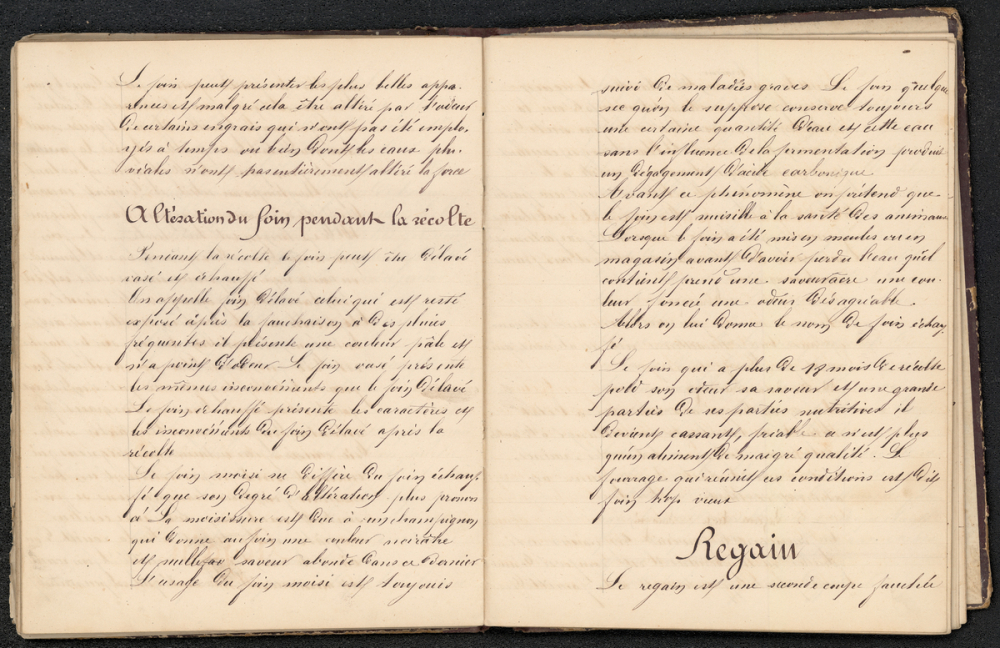 Le foin peut présenter les plus belles appa-
rences et malgré cela être altéré par l'odeur
de certains engrais qui n'ont pas été emplo-
yés à temps ou bien dont les eaux plu-
viales n'ont pas entièrement altéré la force
Altération du foin pendant la récolte
Pendant la récolte le foin peut être délavé
vasé et échauffé
On appelle foin délavé celui qui est resté
exposé après la fauchaison à des pluies
fréquentes il présente une couleur pâle et
n'a point d'odeur. Le foin vasé présente
les mêmes inconvénients que le foin délavé
Le foin échauffé présente les caractères et
les inconvénients du foin délavé après la
récolte
Le foin moisi ne diffère du foin échauf
fé que son degré d'altération plus pronon
cé La moisissure est due à un champignon
qui donne au foin une couleur noirâtre
et saveur abonde dans ce dernier
L'usage du foin moisi est toujours
suivi de maladies graves. Le foin quelque
sec qu'on le suppose conserve toujours
une certaine quantité d'eau et cette eau
sans l'influence de la fermentation produit
un dégagement d'acide carbonique
Avant ce phénomène on prétend que
le foin est nuisible à la santé des animaux
Lorsque le foin a été mis en meules ou en
magasin avant d'avoir perdu l'eau qu'il
contient prend une saveur acre une cou-
leur foncée une odeur désagréable.
Alors on lui donne le nom de foin échauf
fé
Le foin qui a plus de 18 mois de récolte
perd son odeur sa saveur et une grande
parties de ses parties nutritives il
devient cassant, friable a n'est plus
qu'un aliment de maigre qualité. Le
fourrage qui réunit ces conditions est dit
foin trop vieux
Regain
Le regain est une seconde coupe fauchée